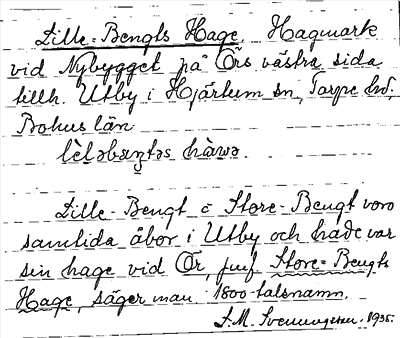 Lille-Bengts Hage. Hagmark
vid Nybygget på Örs västra sida
tillh. Utby i Hjärtum sn, Torpe hd.
Bohus län
lìləbæŋtəs hàwə.
Lille-Bengt o Store-Bengt voro
samtida åbor i Utby och hade var
sin hage vid Ör, jmf Store-Bengts
Hage, säger man 1800-talsnamn.
S.M. Svenungsson. 1935.